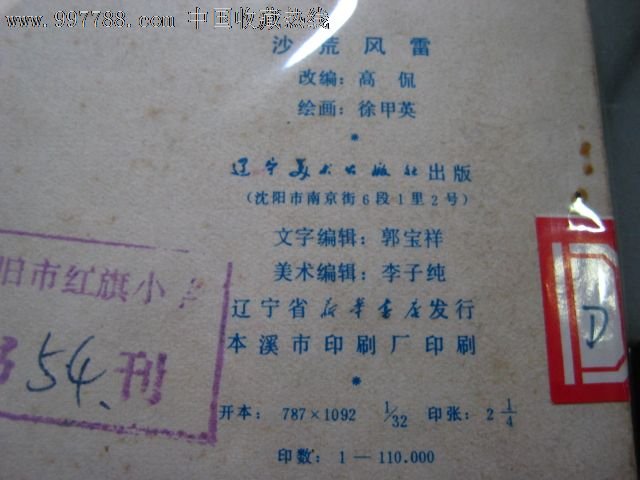 www.997788.com 中国收藏热线
沙荒风雷
改编：高 侃
绘画：徐甲英
辽宁美术出版社出版
（沈阳市南京街6段1里2号）
文字编辑：郭宝祥
美术编辑：李子纯
辽宁省新华书店发行
本溪市印刷厂印刷
开本：787×1092 1/32 印张：2 1/4
印数：1—110.000
旧市红旗小
54.刊
D